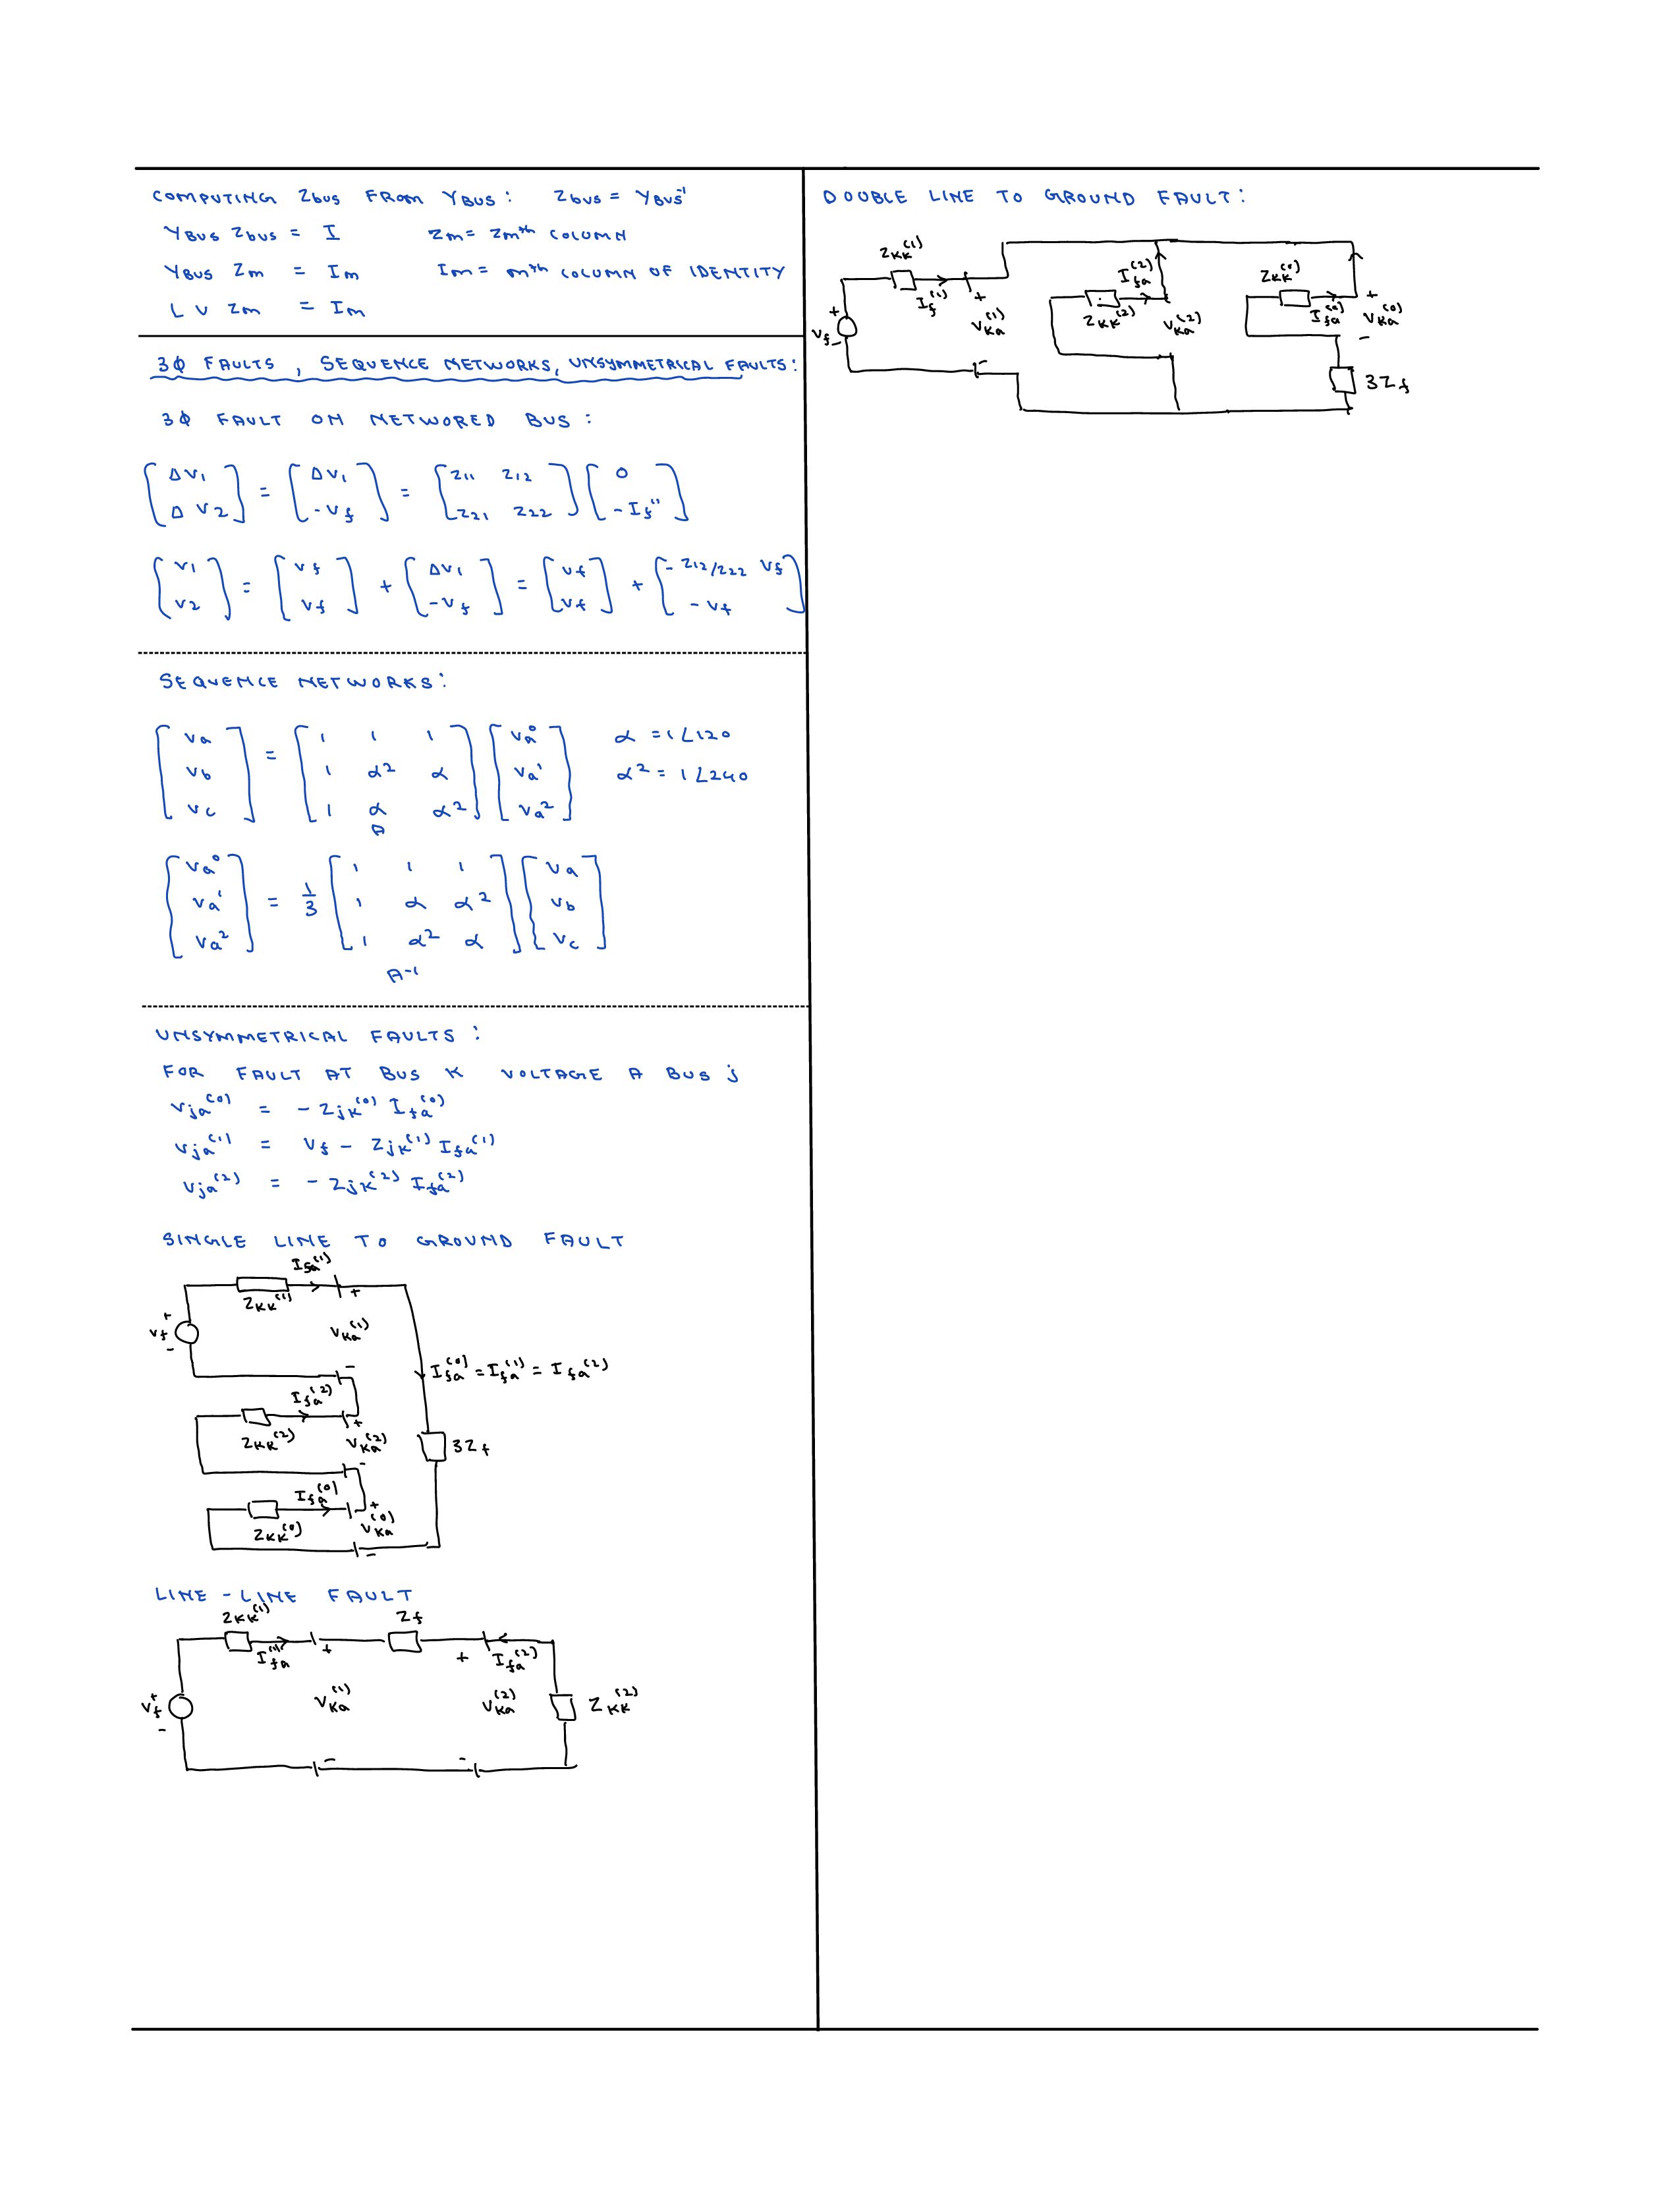 COMPUTING Zbus FROM YBUS : Zbus = YBUS⁻¹
YBUS Zbus = I Zm = Zmᵗʰ COLUMN
YBUS Zm = Im Im = mth COLUMN OF IDENTITY
L U Zm = Im
3Φ FAULTS , SEQUENCE NETWORKS, UNSYMMETRICAL FAULTS :
3Φ FAULT ON NETWORED BUS :
[ΔV1 ; ΔV2] = [ΔV1 ; -Vf] = [Z11 Z12 ; Z21 Z22] [0 ; -If'']
[V1 ; V2] = [Vf ; Vf] + [ΔV1 ; -Vf] = [Vf ; Vf] + [-Z12/Z22 Vf ; -Vf]
SEQUENCE NETWORKS :
[Va ; Vb ; Vc] = [1 1 1 ; 1 α² α ; 1 α α²] [Va⁰ ; Va¹ ; Va²] α = 1∠120
α² = 1∠240
A
[Va⁰ ; Va¹ ; Va²] = 1/3 [1 1 1 ; 1 α α² ; 1 α² α] [Va ; Vb ; Vc]
A⁻¹
UNSYMMETRICAL FAULTS :
FOR FAULT AT BUS K VOLTAGE A BUS j
Vja⁽⁰⁾ = - Zjk⁽⁰⁾ Ifa⁽⁰⁾
Vja⁽¹⁾ = Vf - Zjk⁽¹⁾ Ifa⁽¹⁾
Vja⁽²⁾ = - Zjk⁽²⁾ Ifa⁽²⁾
SINGLE LINE TO GROUND FAULT
Ifa⁽¹⁾
+
ZKK⁽¹⁾
+
Vf
VKa⁽¹⁾
-
-
Ifa⁽⁰⁾ = Ifa⁽¹⁾ = Ifa⁽²⁾
Ifa⁽²⁾
+
ZKK⁽²⁾
VKa⁽²⁾
3Zf
-
Ifa⁽⁰⁾
+
ZKK⁽⁰⁾
VKa⁽⁰⁾
-
LINE - LINE FAULT
ZKK⁽¹⁾ Zf
Ifa⁽¹⁾ + + Ifa⁽²⁾
+
Vf VKa⁽¹⁾ VKa⁽²⁾ ZKK⁽²⁾
-
- -
DOUBLE LINE TO GROUND FAULT :
ZKK⁽¹⁾ Ifa⁽²⁾ ZKK⁽⁰⁾
If⁽¹⁾ + ZKK⁽²⁾ Ifa⁽⁰⁾ +
+
Vf VKa⁽¹⁾ VKa⁽²⁾ VKa⁽⁰⁾
-
- -
3Zf